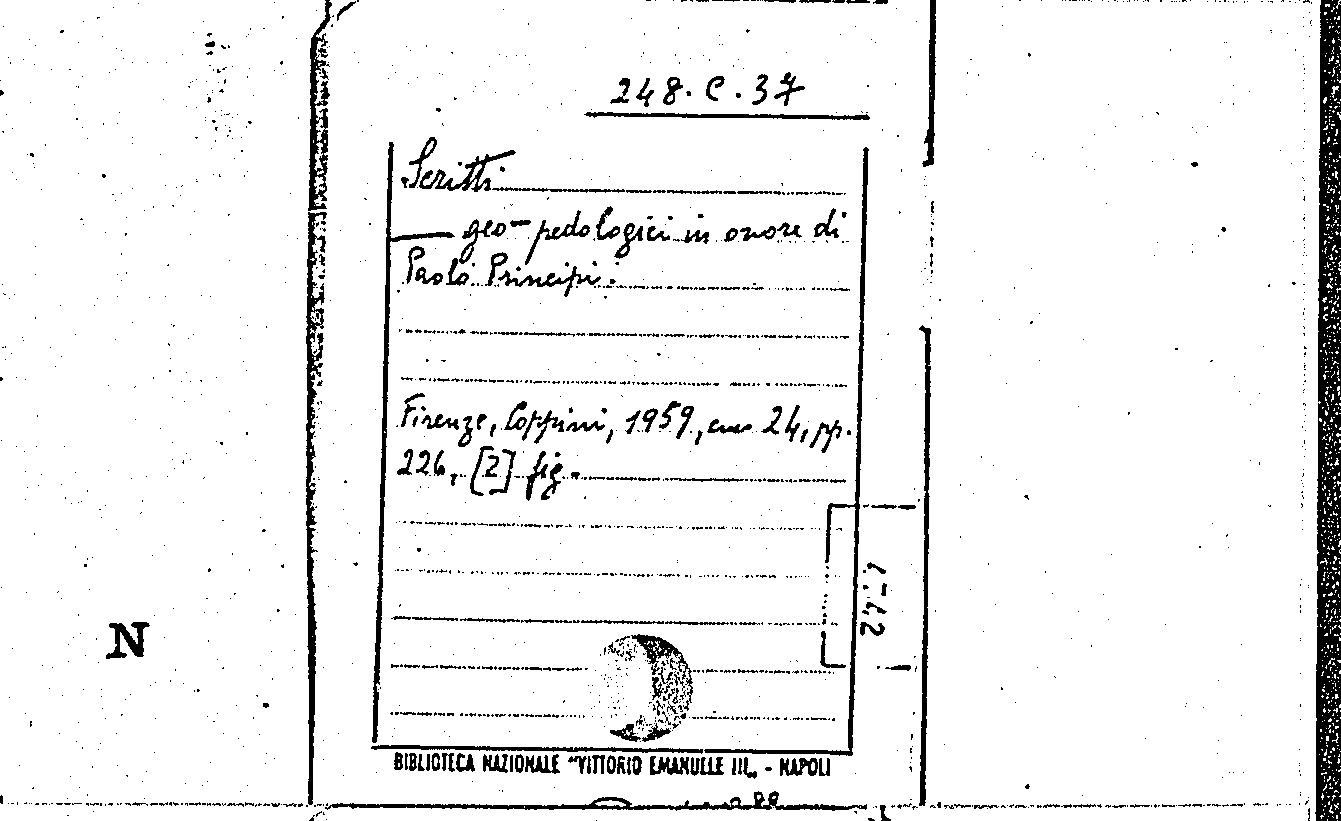 248.C.37
Scritti
— geo-pedologici in onore di
Paolo Principi.
Firenze, Coppini, 1959, cm 24, pp.
226, [2] fig.
N
BIBLIOTECA NAZIONALE "VITTORIO EMANUELE III„ - NAPOLI